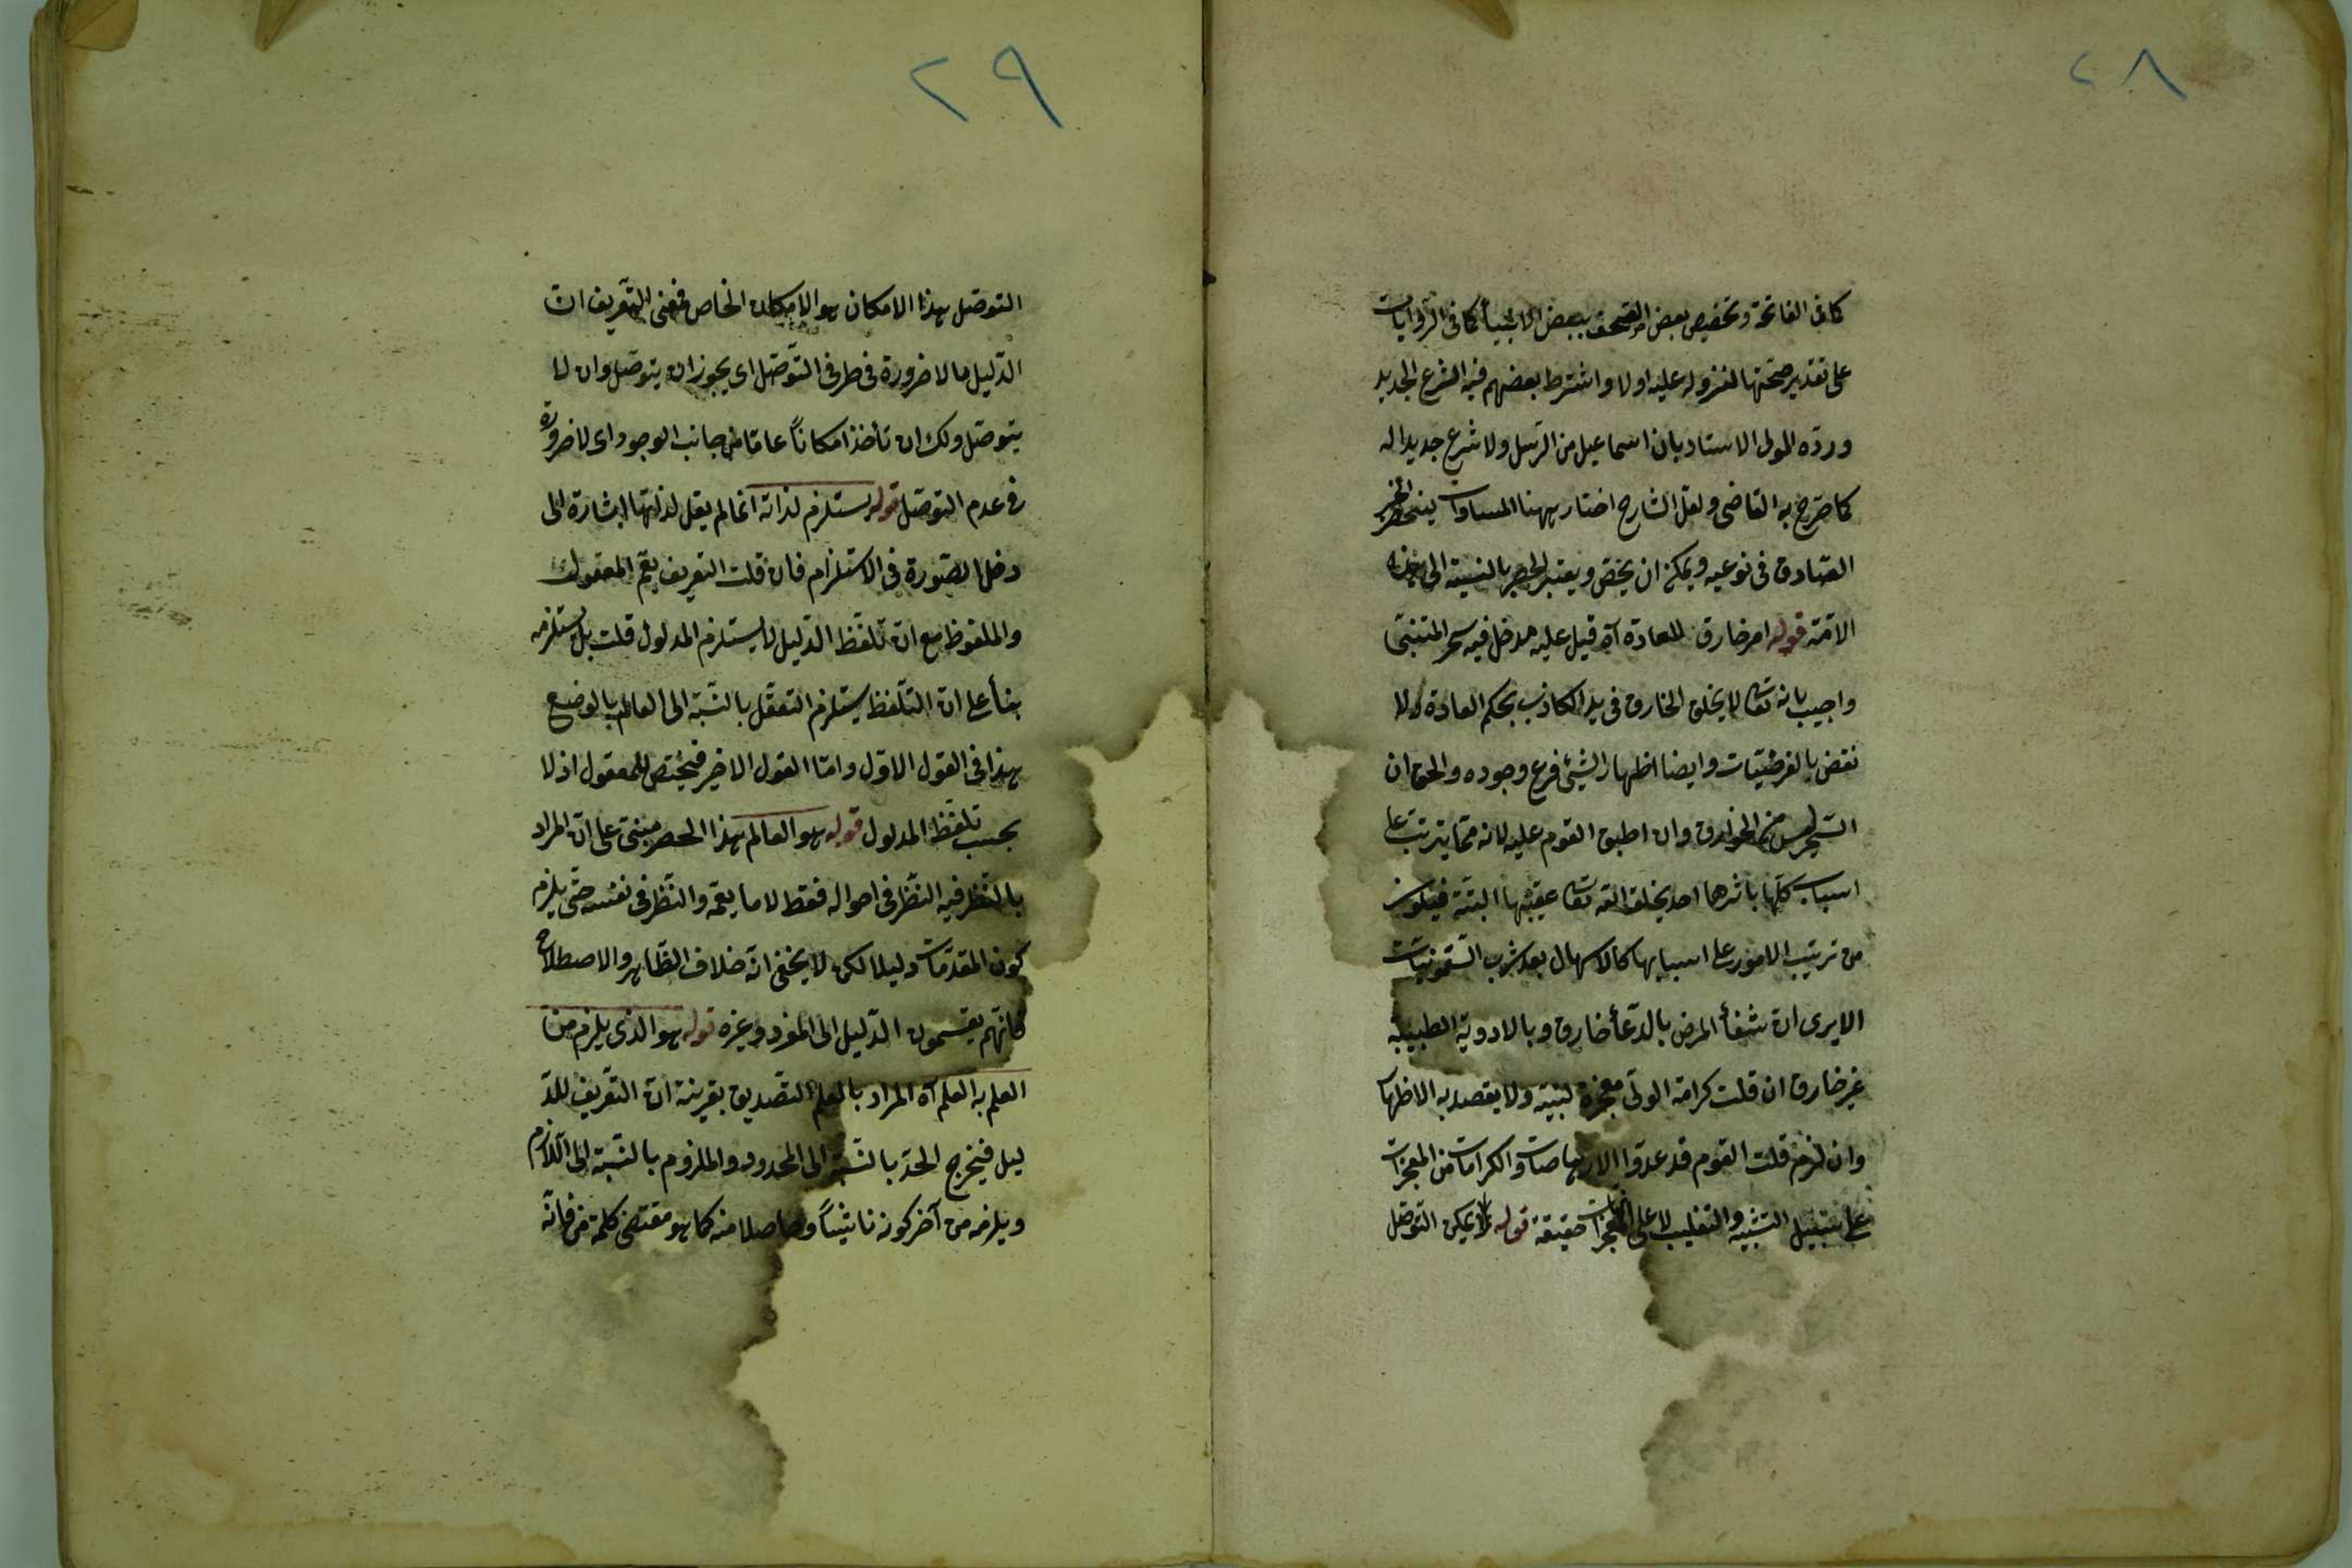 ٢٨
كما فى الفاتحة وتخصيص بعض الصحف ببعض الانبياء كما فى الروايات
على تقدير صحتها لنزوله عليه اولا واشترط بعضهم فيه الشرع الجديد
وردّه المولى الاستاد بان اسماعيل من الرسل ولا شرع جديدا له
كما صرّح به القاضى ولعلّ الشارح اختار ههنا المساوات لينحصر الخبر
الصّادق فى نوعيه ويمكن ان يخصّ ويعتبر الحصر بالنسبة الى هذه
الامّة قوله امر خارق للعادة آه قيل عليه مدخل فيه سحر المتنبّى
واجيب بانه تعالى لا يخلق الخارق فى يد الكاذب بحكم العادة ولا
نقض بالفرضيّات وايضا اظهار الشيئ فرع وجوده والحق ان
السّحر ليس من الخوارق وان اطبق القوم عليه لانه ممّا يترتب على
اسباب كلّما باشرها احد يخلقه اللّه تعالى عقيبها البتّة فيكون
من ترتيب الامور على اسبابها كالاسهال بعد شرب السّقمونيات
الا يرى ان شفأ المرض بالدّعأ خارق وبالادوية الطبيبيّة
غير خارق ان قلت كرامة الولىّ معجزة لنبيّه ولا يقصد به الاظهار
وان لزم قلت القوم قد عدّوا الارهاصات والكرامات من المعجزات
على سبيل التشبيه والتغليب لا على المعجزات حقيقة قوله يمكن التوصّل
٢٩
التوصّل هذا الامكان هو الامكان الخاص فمعنى التّعريف انّ
الدّليل ما لا ضرورة فى طرفى التّوصّل اى يجوز ان يتوصّل وان لا
يتوصّل ولك ان تأخذ امكاناً عامّا من جانب الوجود اى لا ضرورة
فى عدم التوصّل قوله يستلزم لذاته انما لم يقل لذاتها اشارة الى
دخل الصّورة فى الاستلزام فان قلت التعريف يعمّ المعقول
والملفوظ مع انّ تلفّظ الدّليل لا يستلزم المدلول قلت بل يستلزمه
بنأ على انّ التلّفظ يستلزم التعقّل بالنّسبة الى العالم بالوضع
هذا فى القول الاوّل وامّا القول الاخير فيختصّ للمعقول اذ لا
يجب تلفّظ المدلول قوله هو العالم هذا الحصر مبنىّ على انّ المراد
بالنّظر فيه النّظر فى احواله فقط لا ما يعمّه والنّظر فى نفسه حتّى يلزم
كون المقدّمات دليلا لكن لا يخفى انّه خلاف الظّاهر والاصطلاح
فانّهم يقسمون الدّليل الى المفرد وغيره قوله هو الذى يلزم من
العلم به العلم آه المراد بالعلم التّصديق بقرينة انّ التعّريف للدّ
ليل فيخرج الحدّ بالنّسبة الى المحدود والملزوم بالنّسبة الى اللّازم
ويلزمه من آخر كونه ناشيئاً وحاصلا منه كما هو مقتضى كلمة من فانّه